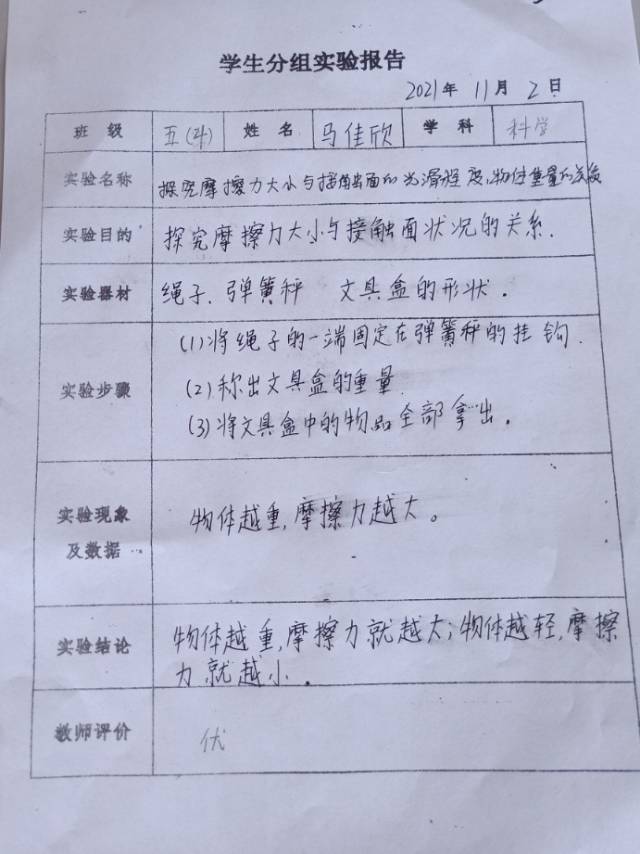 学生分组实验报告
2021年 11月 2日
班 级 五(4) 姓 名 马佳欣 学 科 科学
实验名称 探究摩擦力大小与接触面的光滑程度,物体重量的关系
实验目的 探究摩擦力大小与接触面状况的关系.
实验器材 绳子、弹簧秤 文具盒的形状.
(1)将绳子的一端固定在弹簧秤的挂钩.
实验步骤 (2)称出文具盒的重量
(3)将文具盒中的物品全部拿出.
实验现象 物体越重,摩擦力越大。
及数据
实验结论 物体越重,摩擦力就越大;物体越轻,摩擦
力就越小.
教师评价 优